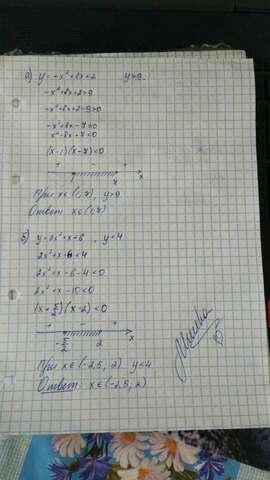 а) y = -x² + 8x + 2    y > 9
-x² + 8x + 2 > 9
-x² + 8x + 2 - 9 > 0
-x² + 8x - 7 > 0
x² - 8x + 7 < 0
(x-1)(x-7) < 0
+ - +
1 7 x
При x ∈ (1,7), y > 9
Ответ x ∈ (1,7)
б) y = 2x² + x - 6, y < 4
2x² + x - 6 < 4
2x² + x - 6 - 4 < 0
2x² + x - 10 < 0
(x + 5/2)(x - 2) < 0
+ - +
-5/2 2 x
При x ∈ (-2,5, 2) y < 4
Ответ: x ∈ (-2,5, 2)